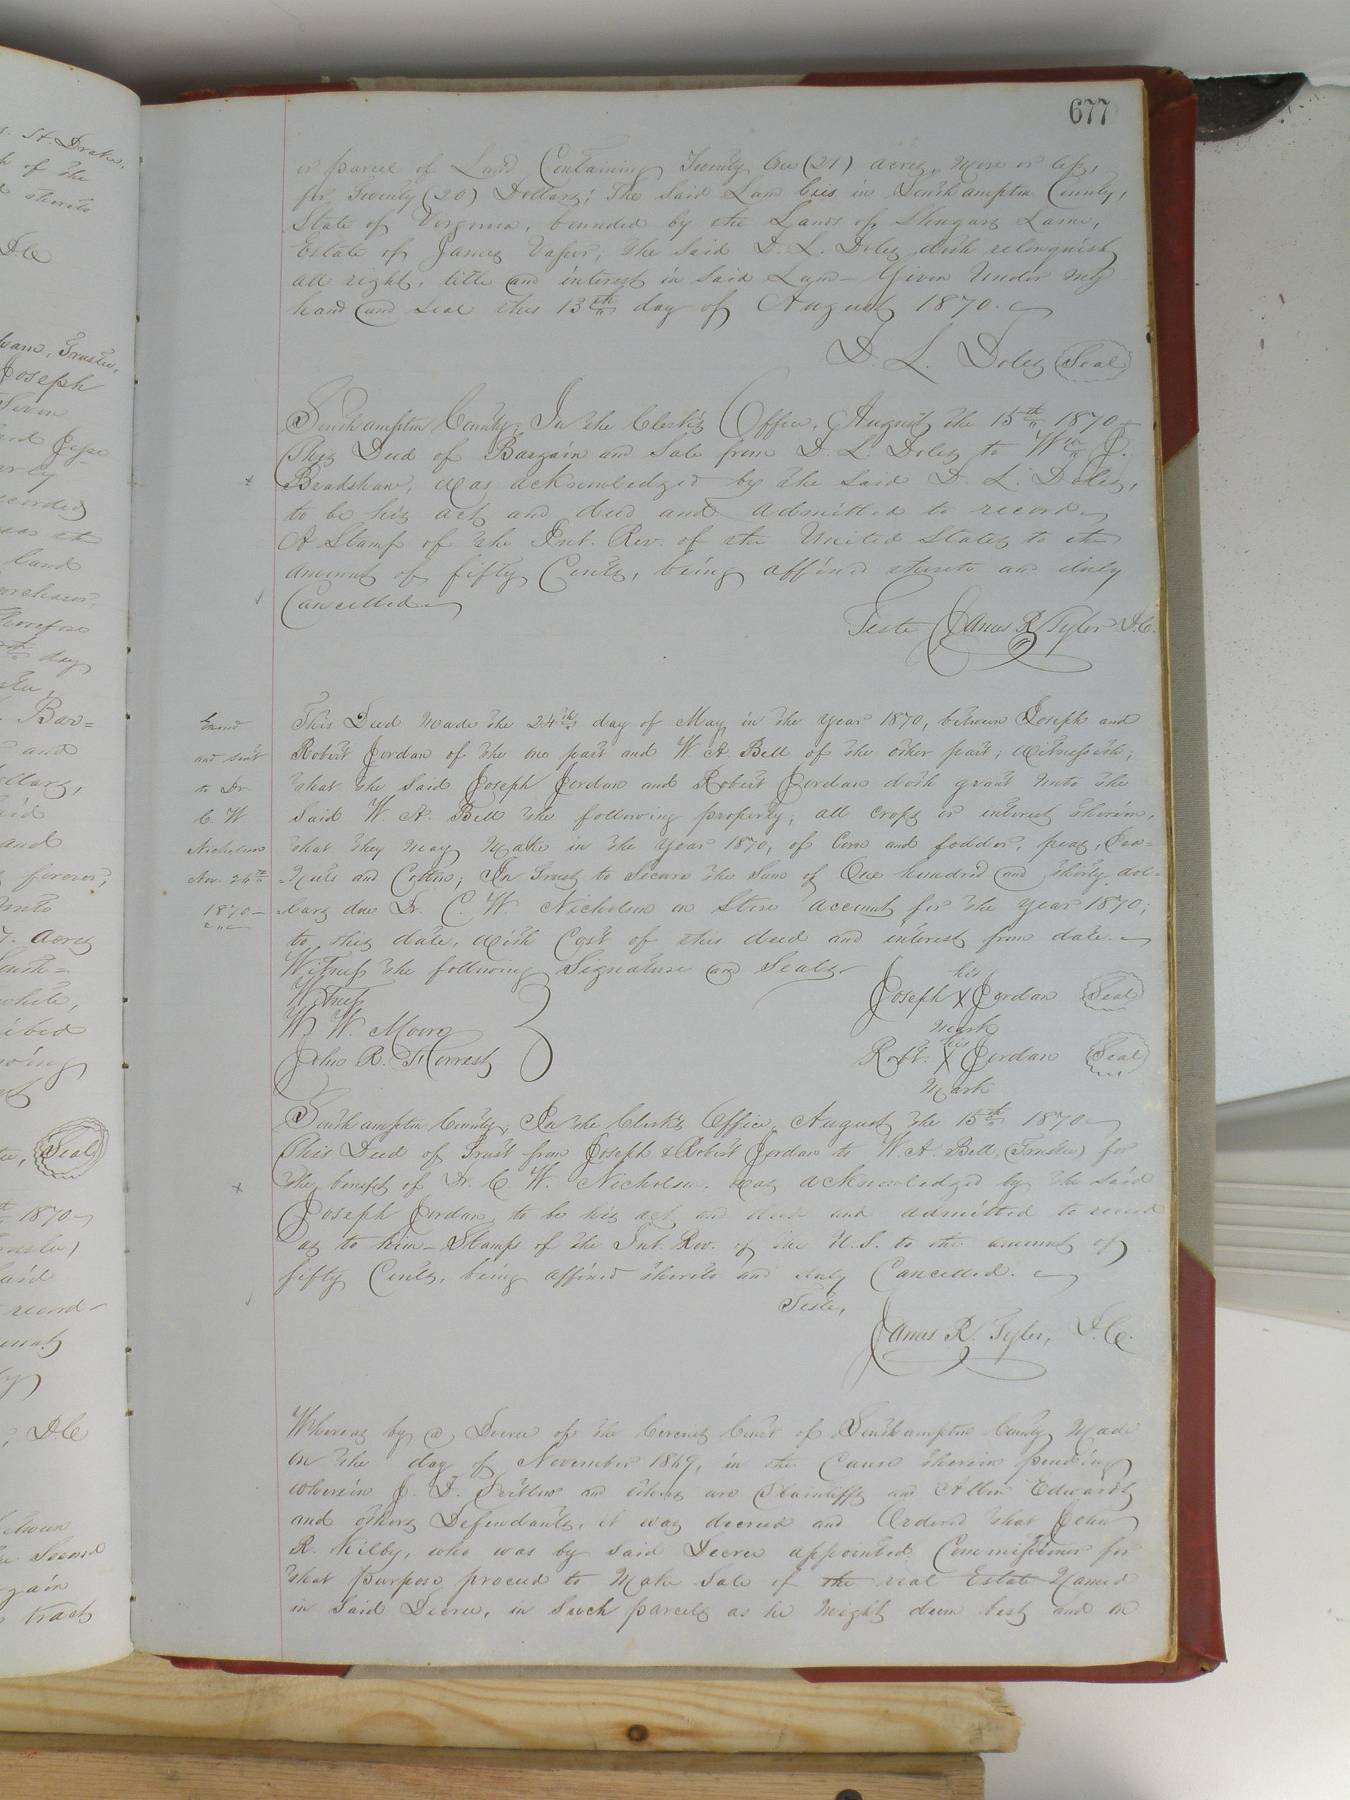 677
or parcel of Land Containing Twenty One (21) acres, more or less,
for Twenty (20) Dollars; The said Lam lies in Southampton County,
State of Virginia, bounded by the Lands of Lam,
Estate of James Vasser; The said D. L. Doles doth relinquish
all right, title and interest in said Lam - Given Under my
hand and seal this 13th day of August 1870.
D. L. Doles Seal
Southampton County; In the Clerk's Office, August the 15th 1870-
This Deed of Bargain and Sale from D. L. Doles to Wm J.
Bradshaw, was acknowledged by the said D. L. Doles,
to be his act and deed and admitted to record
A Stamp of the Int. Rev. of the United States to the
amount of fifty Cents, being affixed thereto and duly
Cancelled.
Teste James R Tyler D.C.
Examd and sent to Dr. C. W. Nicholson Nov. 26th 1870-
This Deed made the 24th day of May, in the year 1870, between Joseph and
Robert Jordan of the one part and W A. Bell of the other part; Witnesseth;
that the said Joseph Jordan and Robert Jordan doth grant unto the
said W A. Bell the following property; all crops or interest therein,
that they may make in the year 1870, of Corn and fodder, peas, Pea-
Nuts and Cotton; In Trust to secure the Sum of One hundred and thirty dol-
lars due Dr. C. W. Nicholson on Store account for the year 1870;
to this date, with Cost of this deed and interest from date.
Witness the following Signature and Seals-
Witness
W W. Moore
John R. Forrest
Joseph his X mark Jordan Seal
Robt. his X mark Jordan Seal
Southampton County; In the Clerk's Office, August the 15th 1870
This Deed of Trust from Joseph & Robert Jordan to W. A. Bell, (Trustee) for
the benefit of Dr. C. W. Nicholson, was acknowledged by the said
Joseph Jordan, to be his act and deed and admitted to record
as to him - Stamps of the Int. Rev. of the U. S. to the amount of
fifty Cents, being affixed thereto and duly Cancelled.
Teste,
James R. Tyler, D.C.
Whereas by a Decree of the Circuit Court of Southampton County made
on the day of November 1869, in the Cause therein pending
wherein J. D. and others are Plaintiffs and Allen Edwards
and others Defendants, it was decreed and Ordered that John
R. Kilby, who was by said Decree appointed Commissioner for
that Purpose proceed to make sale of the real Estate Named
in said Decree, in such parcels as he might deem best and on